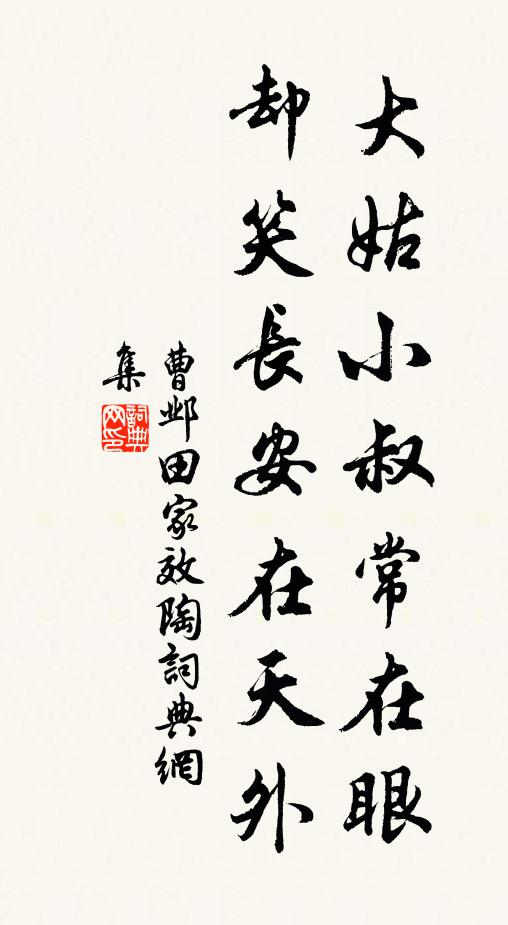 大姑小叔常在眼
却笑長安在天外
曹邺田家效陶詞典網
集
詞典
网印